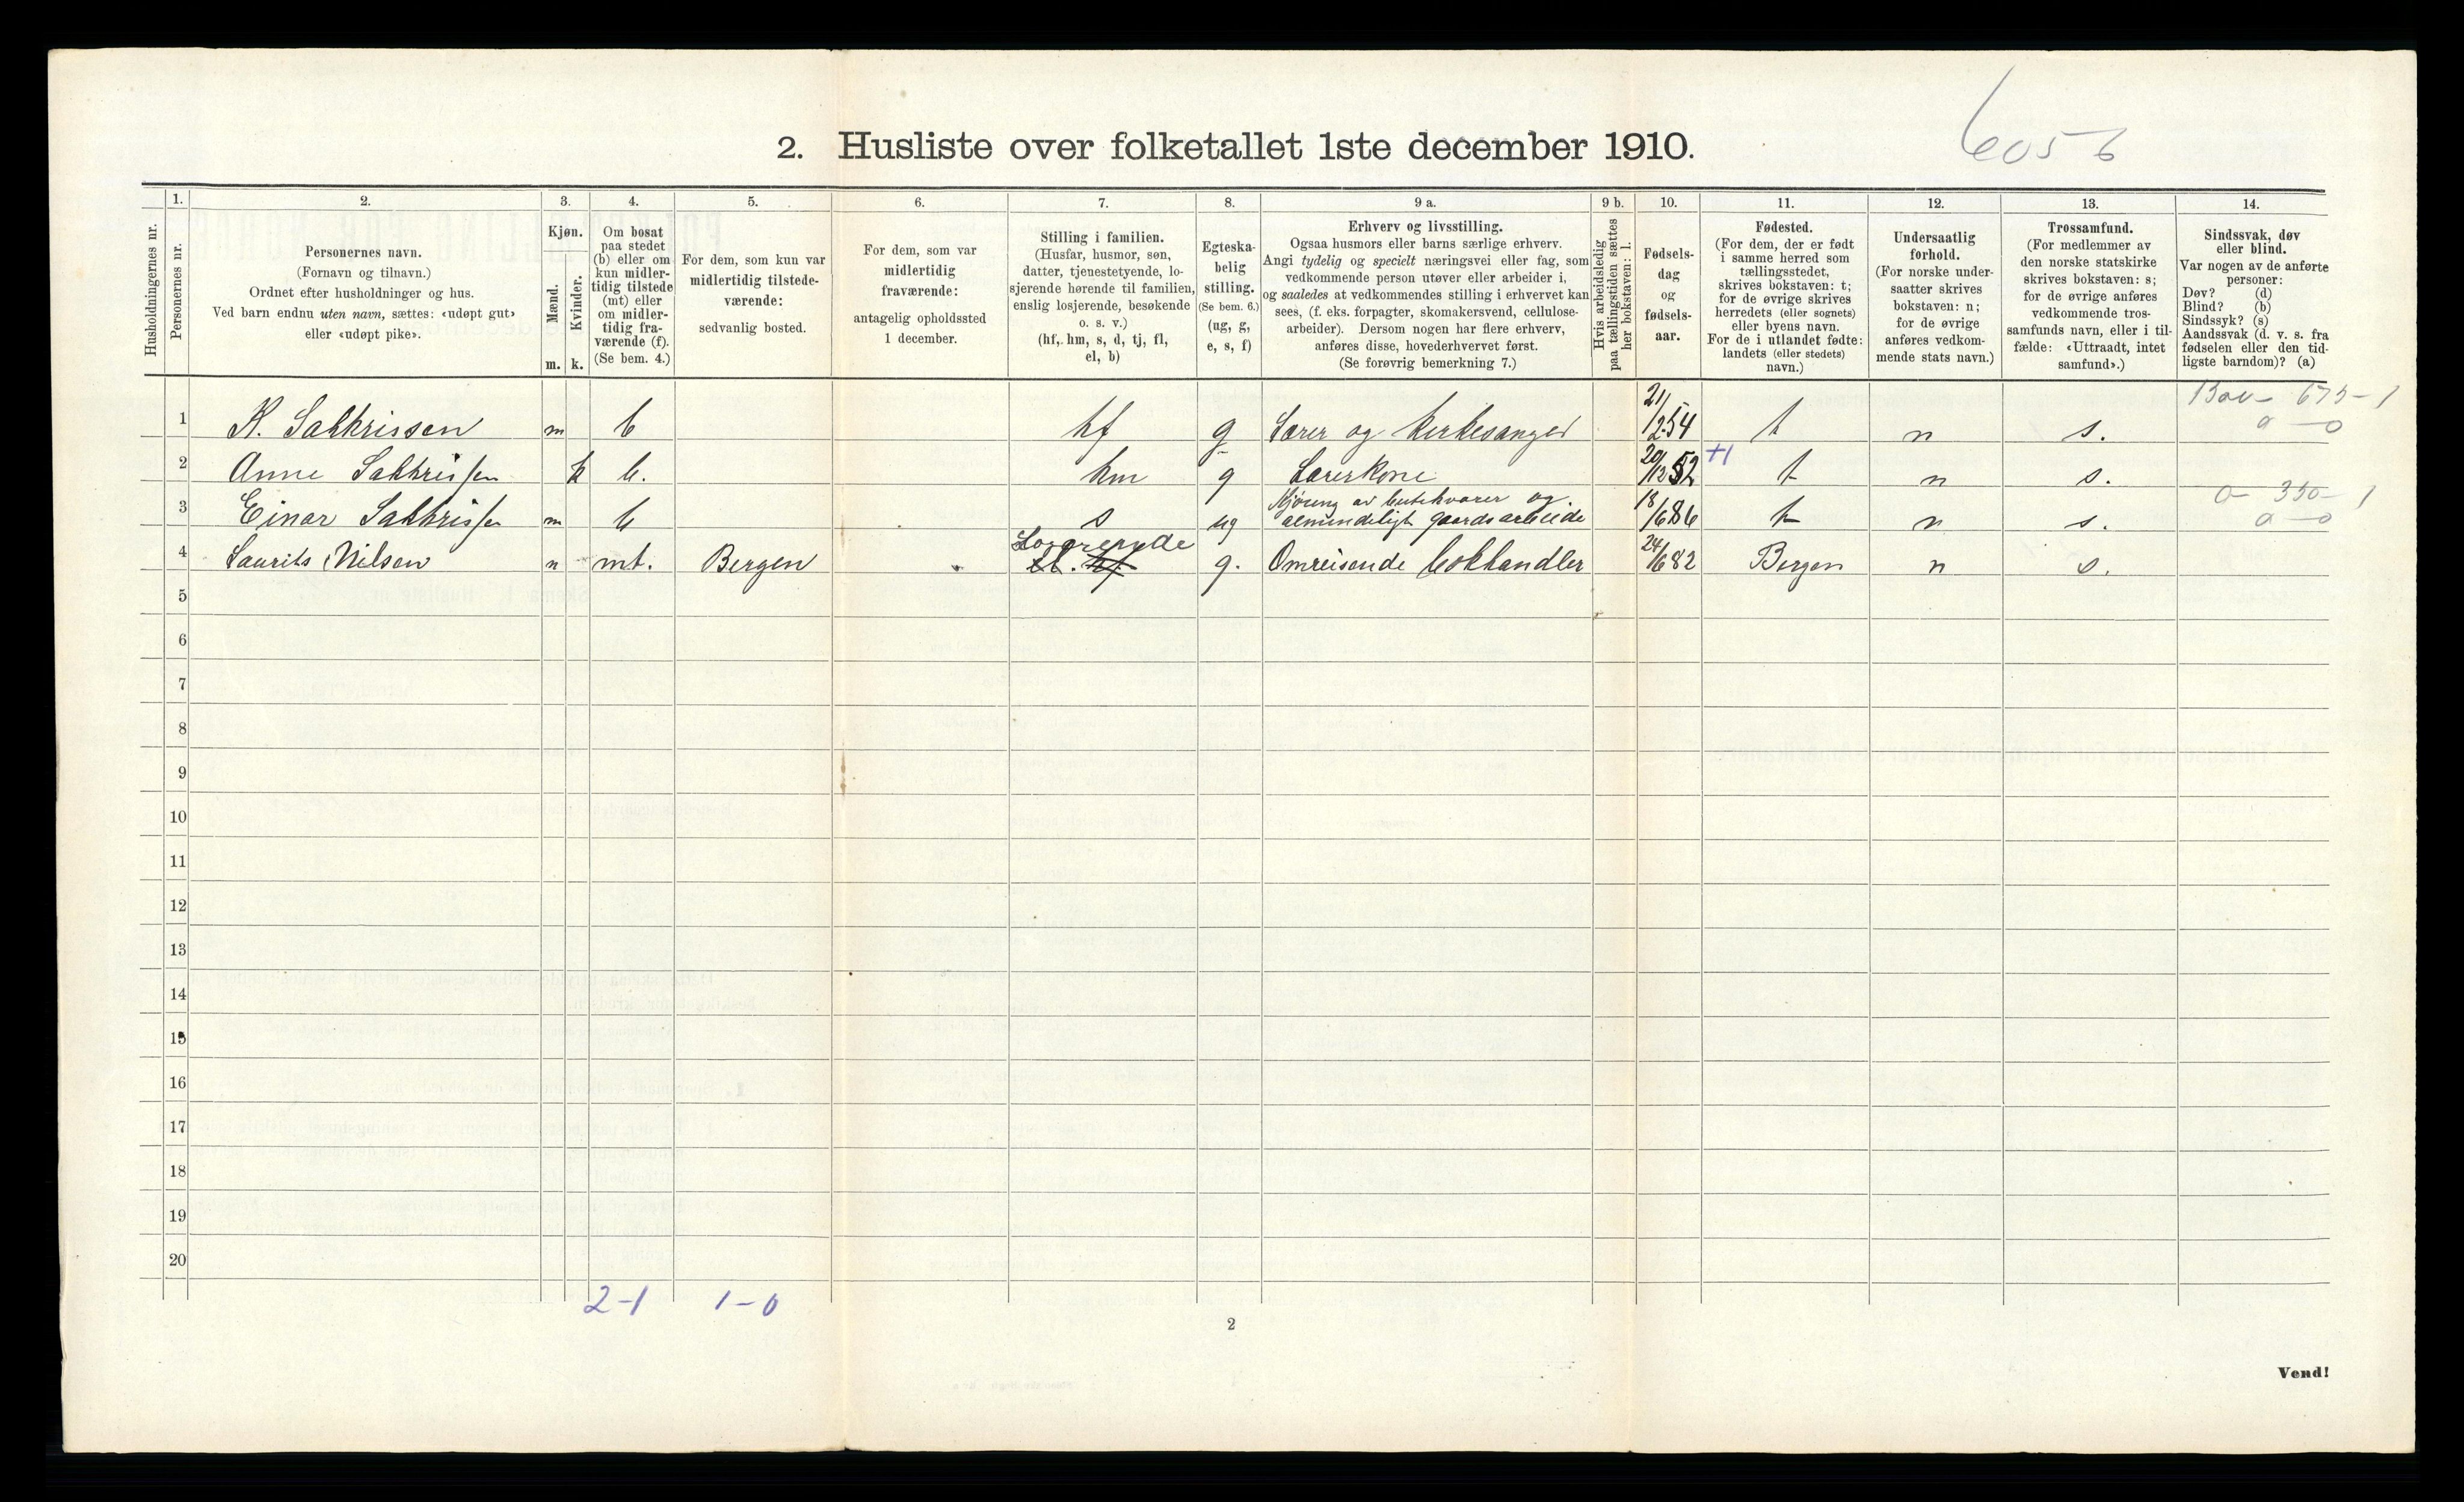 6056
2. Husliste over folketallet 1ste december 1910.
Husholdningernes nr.
1.
Personernes nr.
2.
Personernes navn.
(Fornavn og tilnavn.)
Ordnet efter husholdninger og hus.
Ved barn endnu uten navn, sættes: «udøpt gut»
eller «udøpt pike».
3.
Kjøn.
Mænd.
Kvinder.
m. k.
4.
Om bosat
paa stedet
(b) eller om
kun midler-
tidig tilstede
(mt) eller
om midler-
tidig fra-
værende (f).
(Se bem. 4.)
5.
For dem, som kun var
midlertidig tilstede-
værende:
sedvanlig bosted.
6.
For dem, som var
midlertidig
fraværende:
antagelig opholdssted
1 december.
7.
Stilling i familien.
(Husfar, husmor, søn,
datter, tjenestetyende, lo-
sjerende hørende til familien,
enslig losjerende, besøkende
o. s. v.)
(hf, hm, s, d, tj, fl,
el, b)
8.
Egteska-
belig
stilling.
(Se bem. 6.)
(ug, g,
e, s, f)
9 a.
Erhverv og livsstilling.
Ogsaa husmors eller barns særlige erhverv.
Angi tydelig og specielt næringsvei eller fag, som
vedkommende person utøver eller arbeider i,
og saaledes at vedkommendes stilling i erhvervet kan
sees, (f. eks. forpagter, skomakersvend, cellulose-
arbeider). Dersom nogen har flere erhverv,
anføres disse, hovederhvervet først.
(Se forøvrig bemerkning 7.)
9 b.
Hvis arbeidsledig
paa tællingstiden sættes
her bokstaven: l.
10.
Fødsels-
dag
og
fødsels-
aar.
11.
Fødested.
(For dem, der er født
i samme herred som
tællingsstedet,
skrives bokstaven: t;
for de øvrige skrives
herredets (eller sognets)
eller byens navn.
For de i utlandet fødte:
landets (eller stedets)
navn.)
12.
Undersaatlig
forhold.
(For norske under-
saatter skrives
bokstaven: n;
for de øvrige
anføres vedkom-
mende stats navn.)
13.
Trossamfund.
(For medlemmer av
den norske statskirke
skrives bokstaven: s;
for de øvrige anføres
vedkommende tros-
samfunds navn, eller i til-
fælde: «Uttraadt, intet
samfund».)
14.
Sindssvak, døv
eller blind.
Var nogen av de anførte
personer:
Døv? (d)
Blind? (b)
Sindssyk? (s)
Aandssvak (d. v. s. fra
fødselen eller den tid-
ligste barndom)? (a)
1 K. Sakkrissen m b hf g Lærer og Kirkesanger 21/12 54 t n s. 675-1
2 Anne Sakkrissen k b. hm g Lærerkone 20/12 52 +1 t n s.
3 Einar Sakkrissen m b s ug Kjöring av butikvarer og almindeligt gaardsarbeide 18/6 86 t n s. 0- 350-1
4 Laurits Nilsen m mt. Bergen Losjerende g. Omreisende bokhandler 24/6 82 Bergen n s.
5
6
7
8
9
10
11
12
13
14
15
16
17
18
19
20
2-1 1-0
2
Vend!